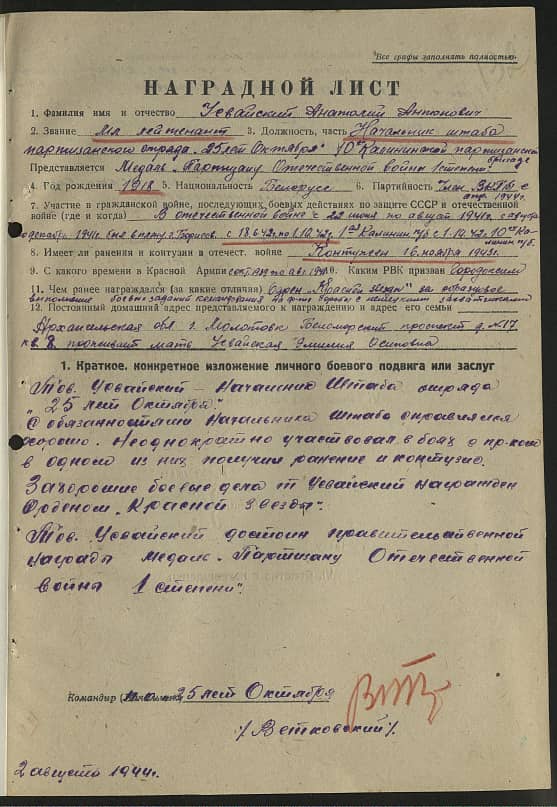 Все графы заполнять полностью
НАГРАДНОЙ ЛИСТ
1. Фамилия имя и отчество Усвайский Анатолий Антонович
2. Звание Мл лейтенант 3. Должность, часть Начальник штаба
партизанского отряда "25 лет Октября" 10ой Калининской партизанской
бригады
Представляется Медаль "Партизану Отечественной войны 1 степени"
4. Год рождения 1918 5. Национальность Белорус 6. Партийность Член ВКП(б) с
1944г.
7. Участие в гражданской войне, последующих боевых действиях по защите СССР и отечественной
войне (где и когда) В отечественной войне с 22 июня по август 1941г с августа
по декабрь 1941г был в плену г. Борисов. с 18.6.42г по 1.10.42г. 1ая Калинин п/б с 1.10.42 10ая Ка-
линин п/б.
8. Имеет ли ранения и контузии в отечест. войне Контужен 16 ноября 1943г.
9. С какого времени в Красной Армии 10. Каким РВК призван
11. Чем ранее награждался (за какие отличия) Орден "Красная Звезда" за образцовое
выполнение боевых заданий командования на фронте борьбы с немецкими захватчиками
12. Постоянный домашний адрес представляемого к награждению и адрес его семьи
Архангельская обл. г. Молотовск Беломорский проспект д. №17
кв 8 проживает мать Усвайская Эмилия Осиповна
1. Краткое, конкретное изложение личного боевого подвига или заслуг
Тов. Усвайский - Начальник Штаба отряда
"25 лет Октября".
С обязанностями Начальника штаба справлялся
хорошо. Неоднократно участвовал в боях с пр-ком
в одном из них получил ранение и контузию.
За хорошие боевые дела т Усвайский награжден
Орденом "Красной Звезды".
Тов. Усвайский достоин правительственной
награды медаль "Партизану Отечественной
война 1 степени".
Командир п.о. 25 лет Октября
/Ветковский/.
2 августа 1944г.